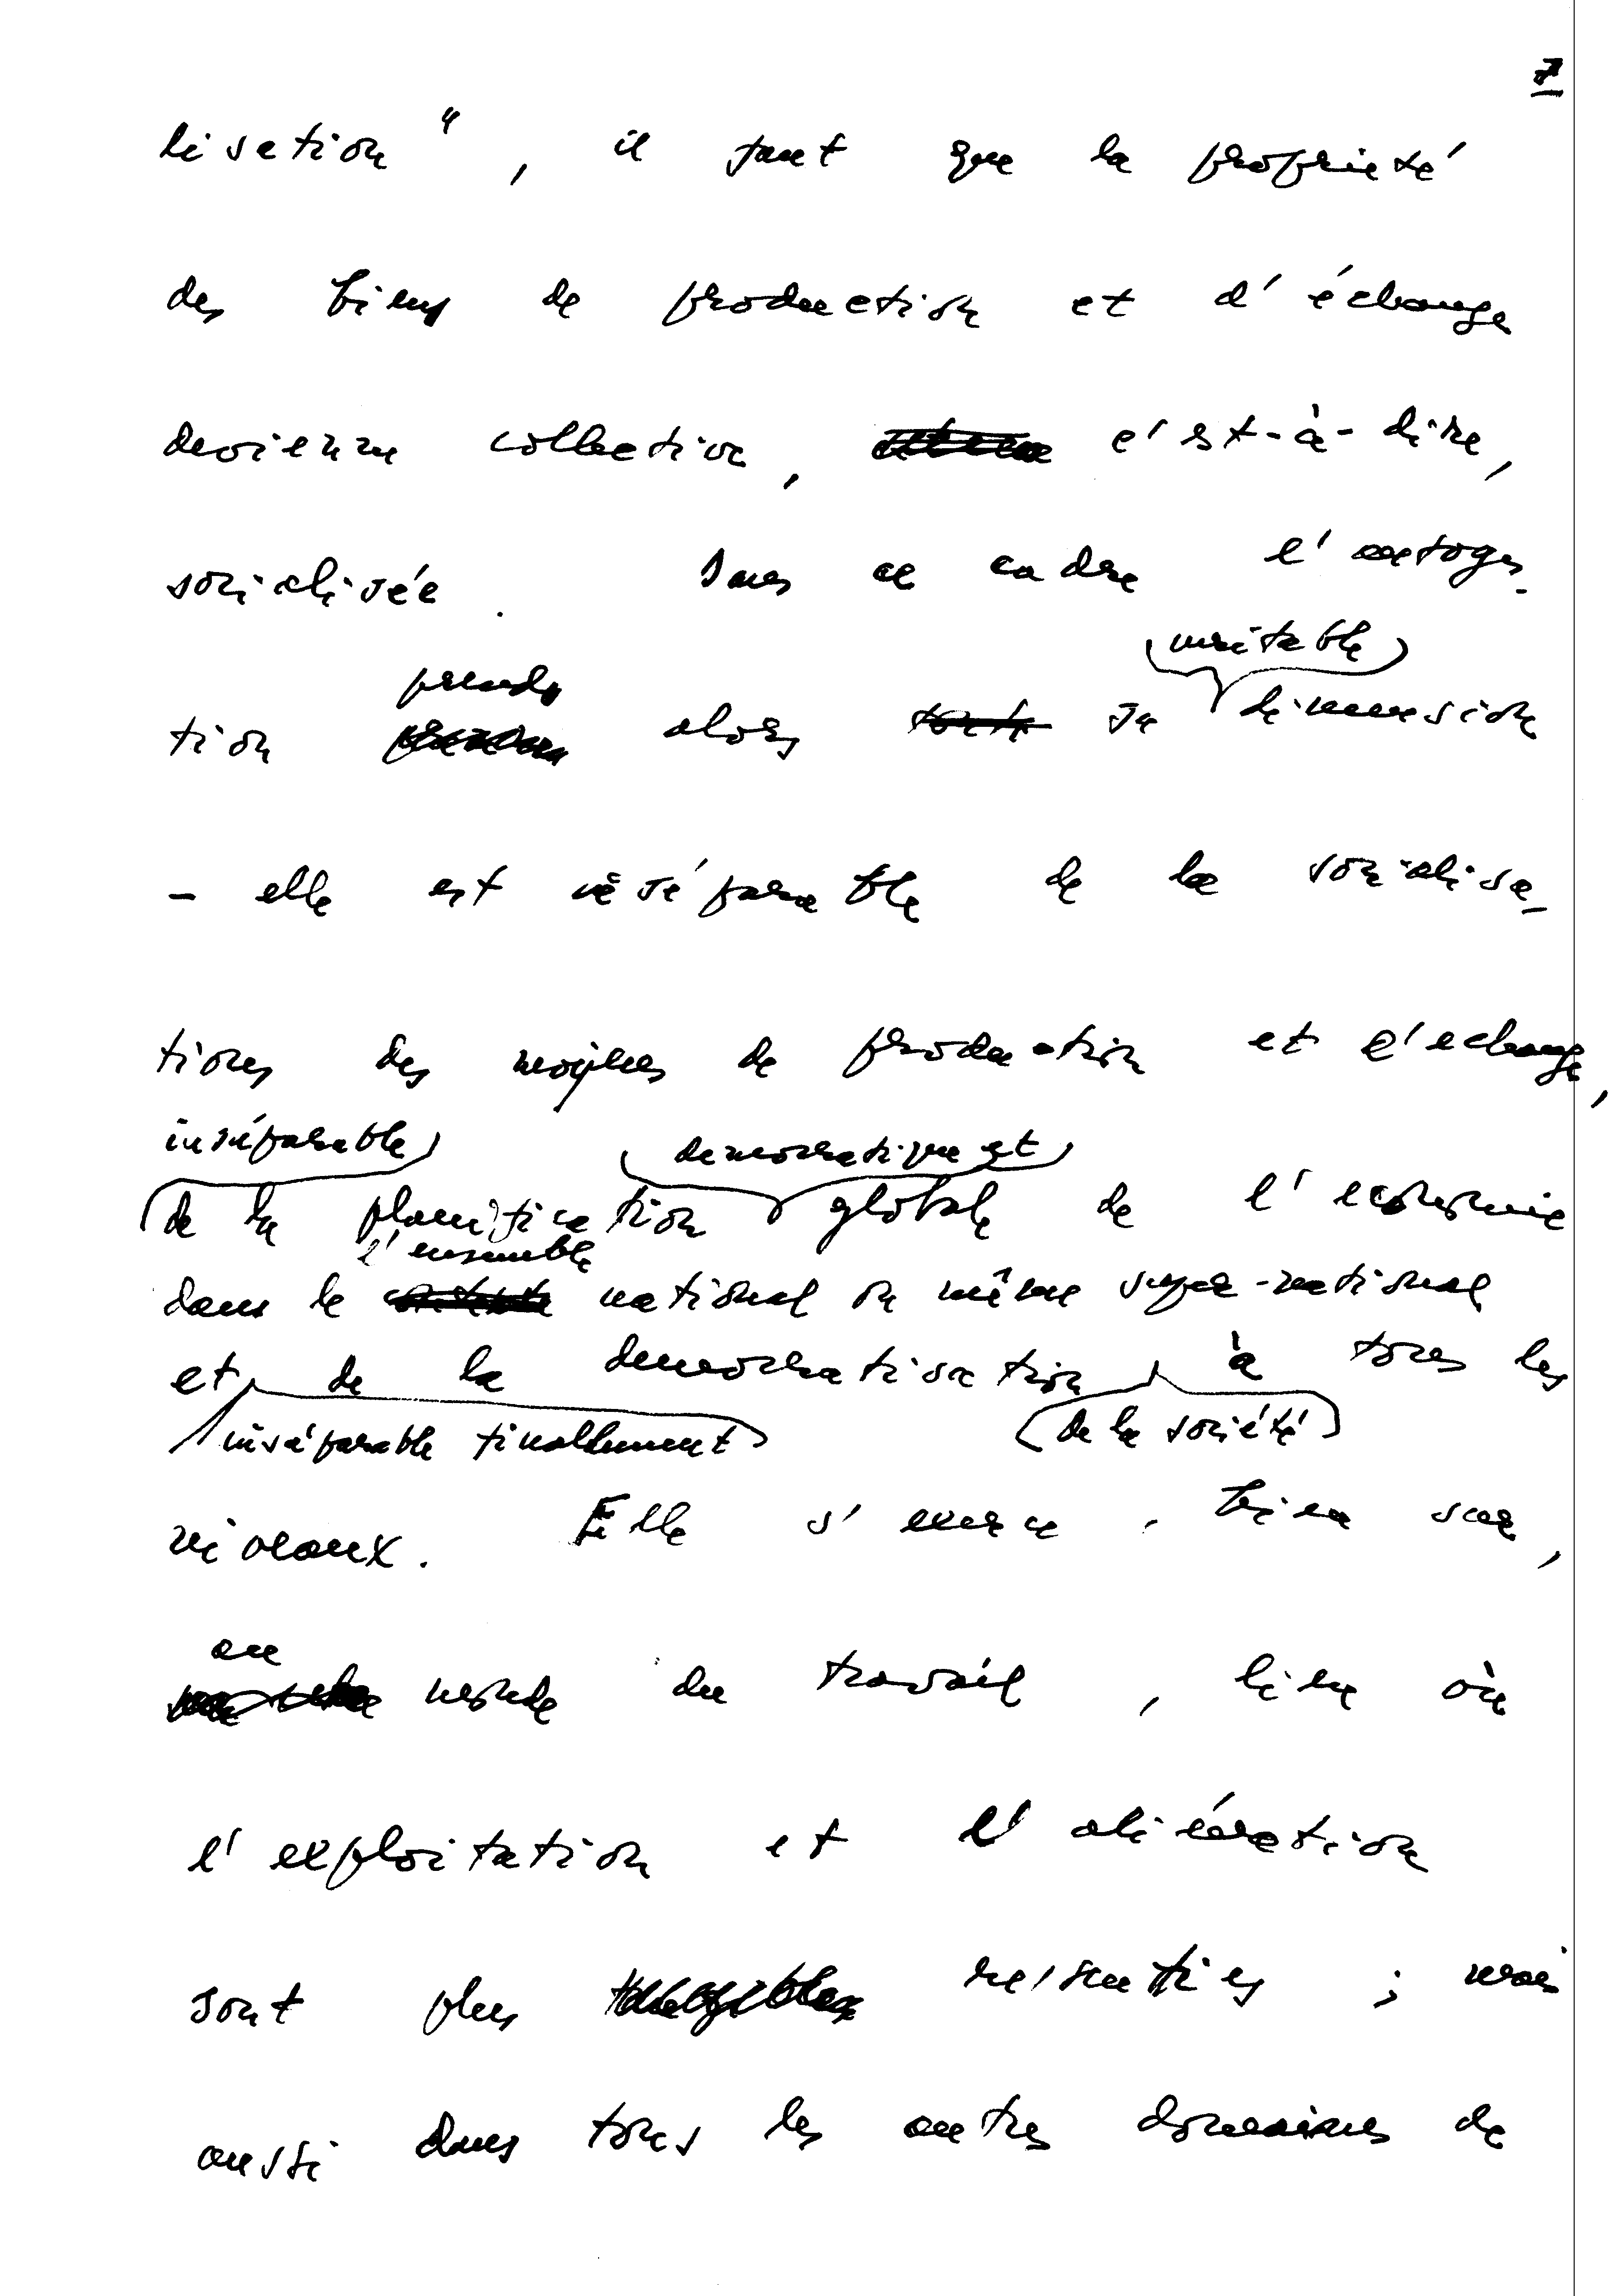 7
lisation", il faut que la propriété
des biens de production et d'échange
devienne collective, c'est-à-dire,
socialisée. Dans ce cadre l'autoges-
véritable
prends
tion alors sa dimension
- elle est inséparable de la socialisa-
tions des moyens de production et d'echange,
inséparable democratique et
de la planification globale de l'economie
l'ensemble
dans le national ou même supra-national
et de la democratisation à tous les
inséparable finallement de la société
niveaux. Elle s'exerce, bien sur,
au
monde du travail, lieu où
l'exploitation et l'aliénation
sont plus ressenties ; mais
aussi dans tous les autres domaines de